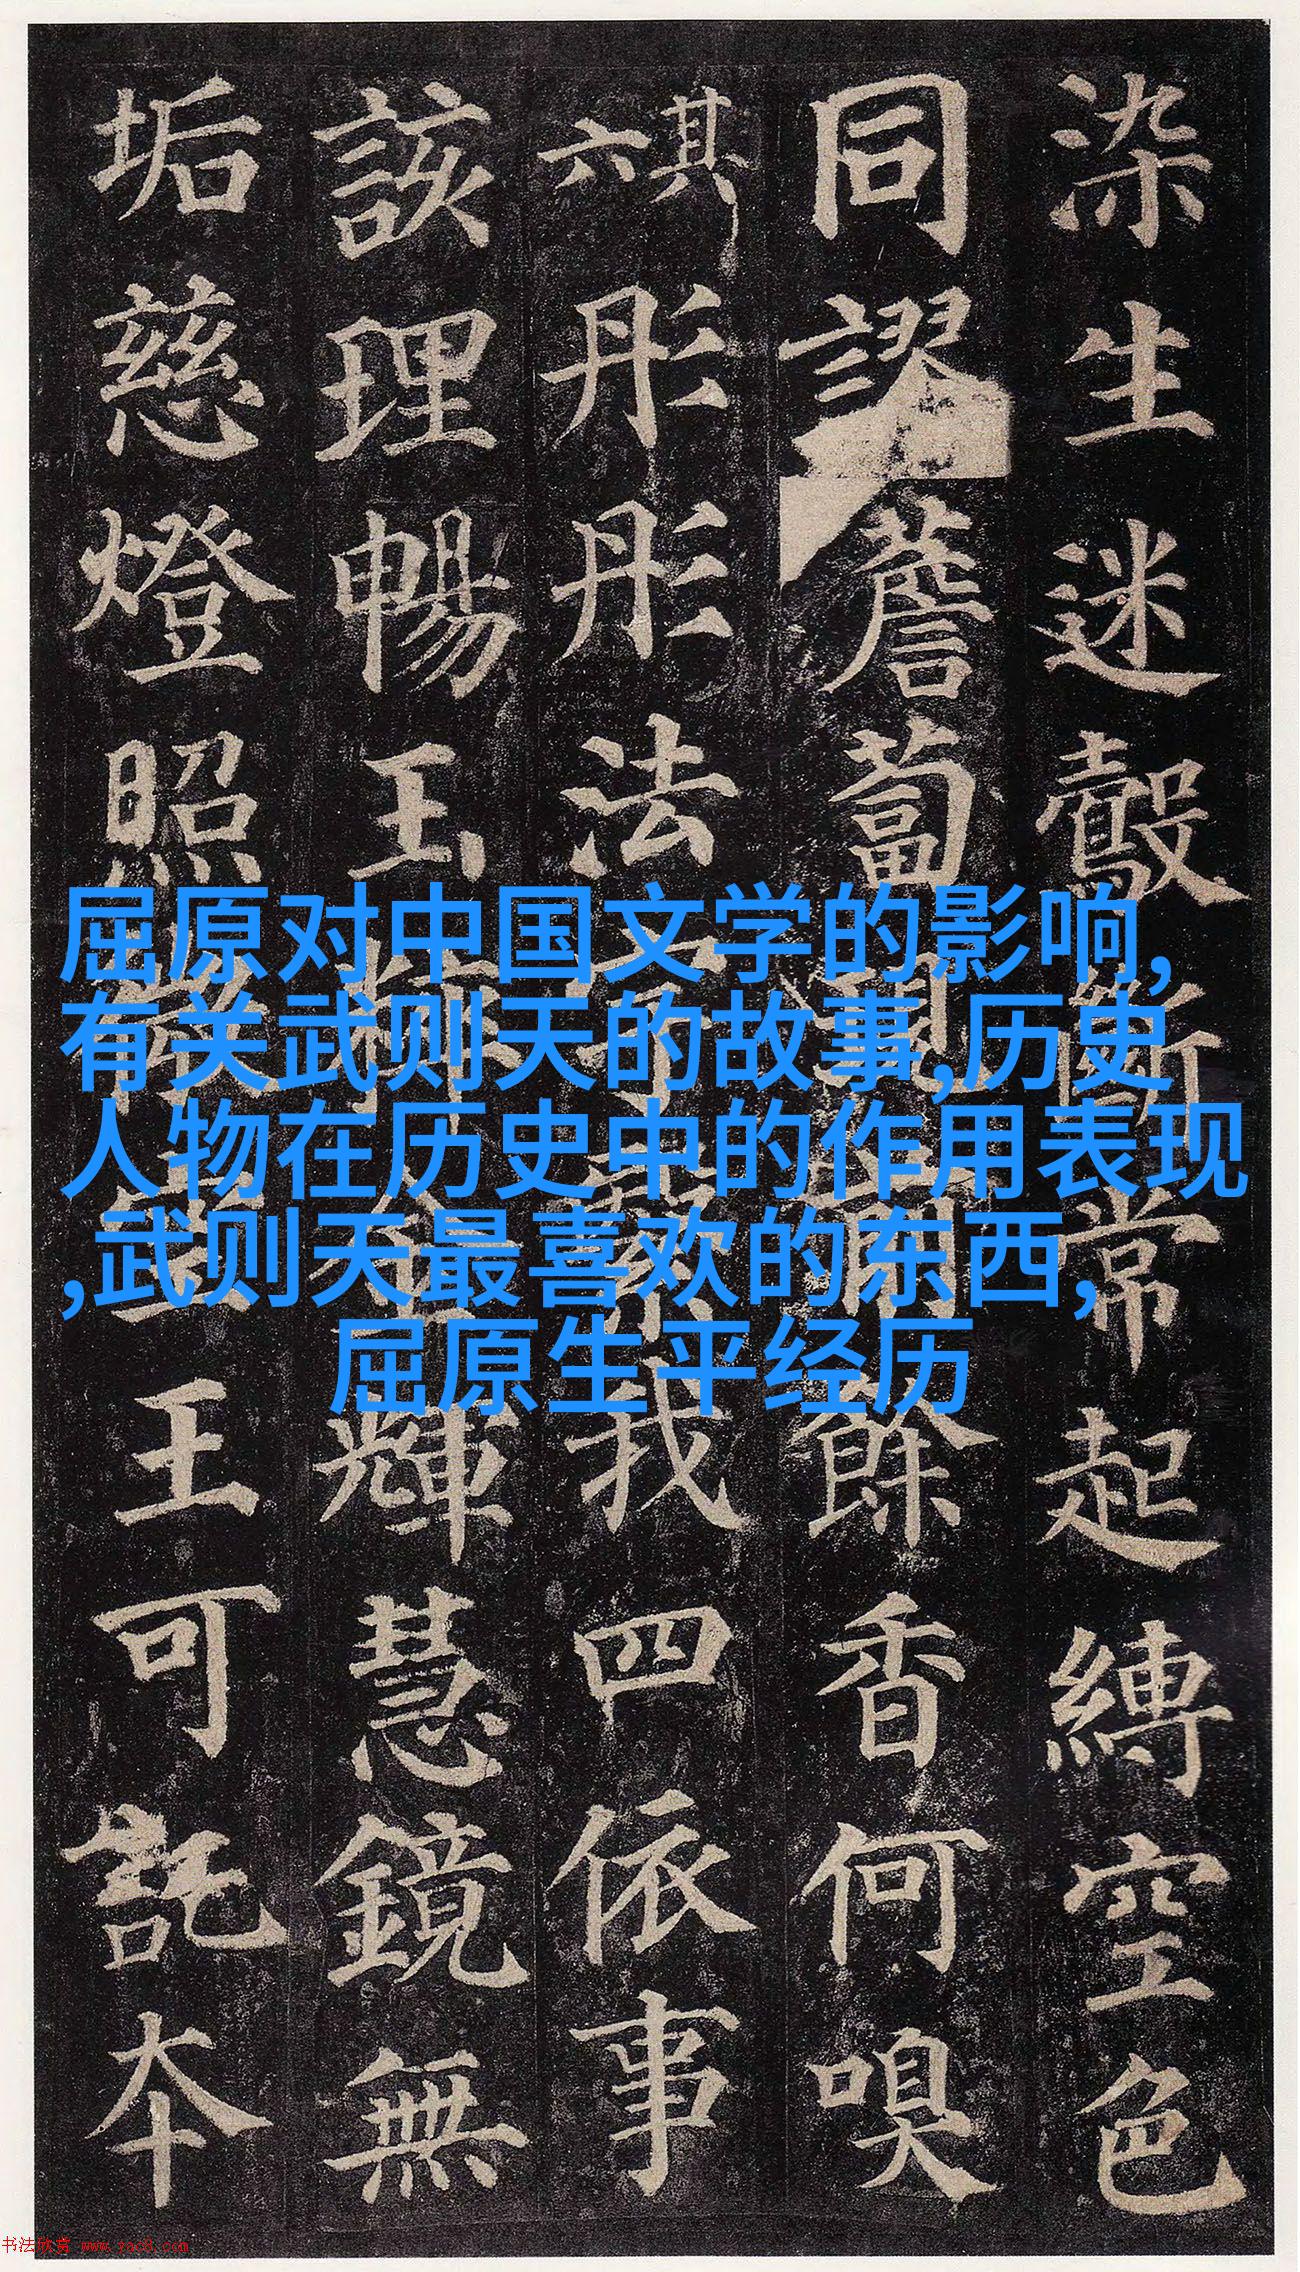 屈原对中国文学的影响,
有关武则天的故事,历史
人物在历史中的作用表现
,武则天最喜欢的东西,
屈原生平经历
染生迷鷇斷常起縛空色
同謬薝蔔現前餘香何嗅
其六彤彤法宇繄我四依事
該理暢玉粹金輝慧鏡無
垢慈燈照微空王可託本
书法欣赏 www.yac8.com